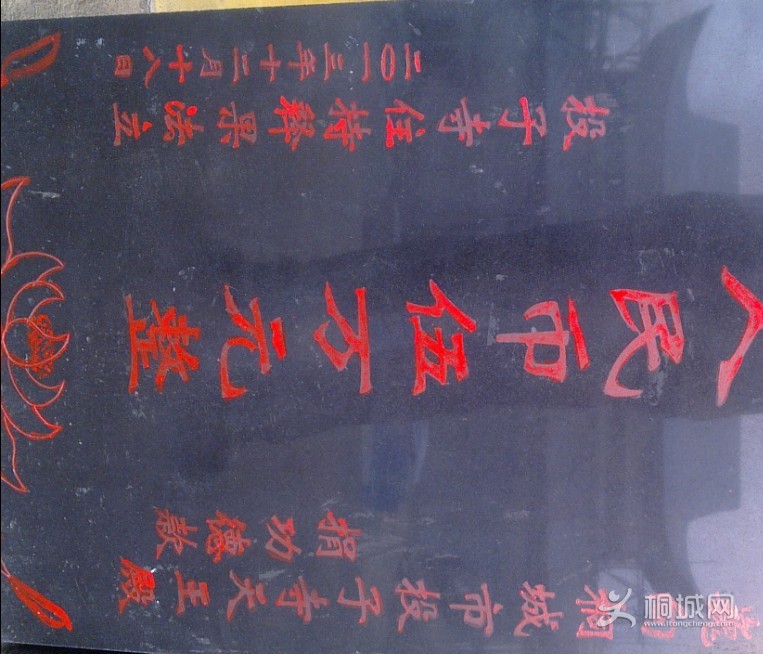 桐城市投子寺天王殿
捐功德款
人民币伍万元整
投子寺住持释果法立
二〇一三年十二月十八日
桐城网
www.itongcheng.com